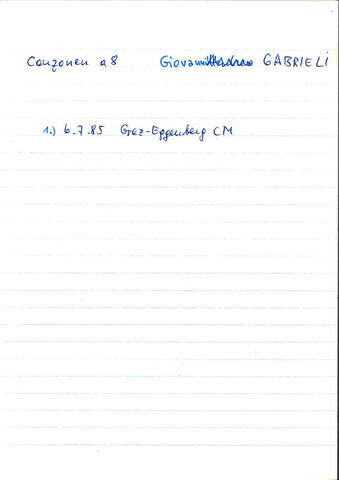 Canzonen a 8 GABRIELI
1.) 6.7.85 Graz-Eggenberg CM